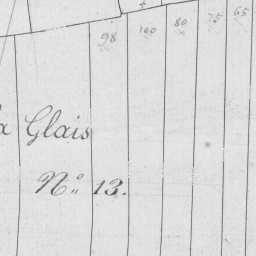 98 100 80 75 65
Glais
N.º 13.